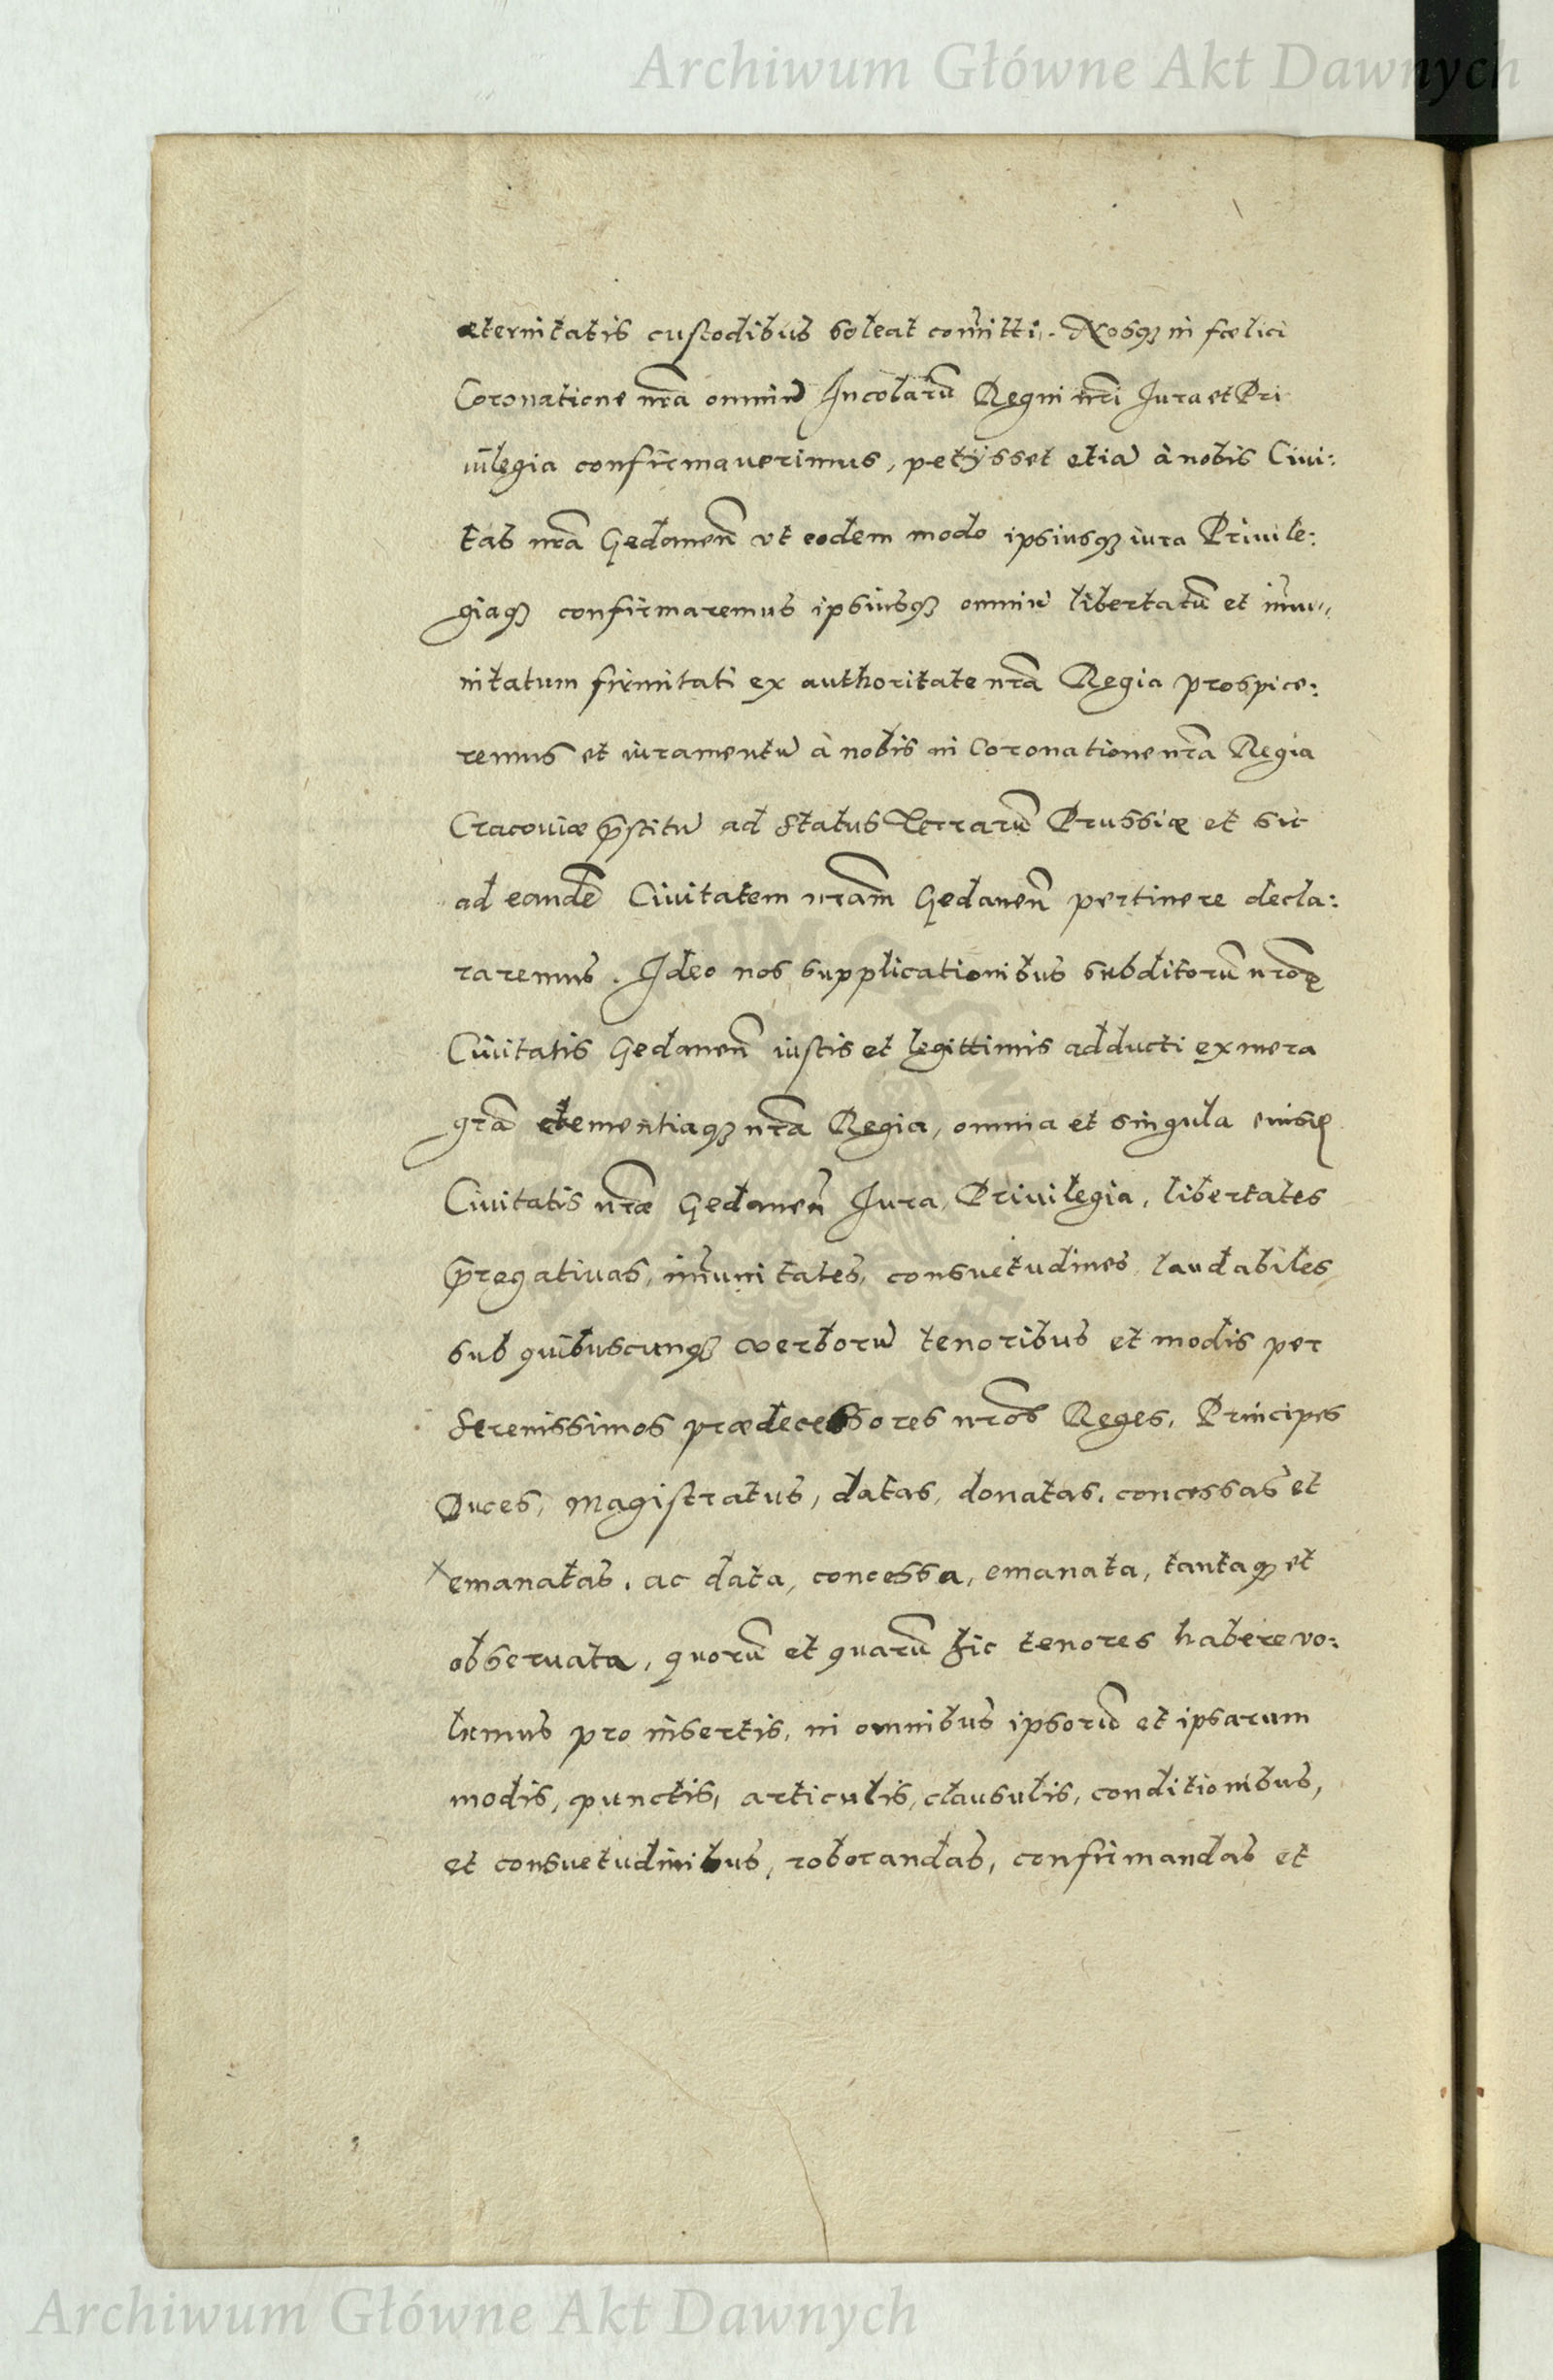 Archiwum Główne Akt Dawnych
æternitatis custodibus soleat com̃itti. Nosq₃ in fœlici
Coronatione nr̃a omniũ Incolarũ Regni nr̃i Jura et Pri
vilegia confirmaverimus, petÿsset etiã à nobis Civi:
tas nr̃a Gedanen̄ ut eodem modo ipsiusq₃ iura Privile:
giaq₃ confirmaremus ipsiusq₃ omniũ libertatũ et im̃u„
nitatum firmitati ex authoritate nr̃a Regia prospice:
remus et iuramentũ à nobis in Coronatione nr̃a Regia
Cracoviæ p̃stitũ ad Status Terrarũ Prussiæ et sic
ad eandẽ Civitatem nr̃am Gedanen̄ pertinere decla:
raremus. Ideo nos supplicationibus subditorũ nr̃oꝝ
Civitatis Gedanen̄ iustis et legittimis adducti ex mera
gr̃a clementiaq₃ nr̃a Regia, omnia et singula eiusd
Civitatis nr̃æ Gedanen̄ Jura, Privilegia, libertates
p̃rogativas, im̃unitates, consuetudines laudabiles,
sub quibuscunq₃ verborũ tenoribus et modis per
Serenissimos prædecessores nr̃os Reges, Principes
Duces, Magistratus, datas, donatas, concessas et
× emanatas, ac data, concessa, emanata, tantaq₃ et
observata, quorũ et quarũ hic tenores habere vo:
lumus pro insertis, in omnibus ipsorũ et ipsarum
modis, punctis, articulis, clausulis, conditionibus,
et consuetudinibus, roborandas, confirmandas et
Archiwum Główne Akt Dawnych